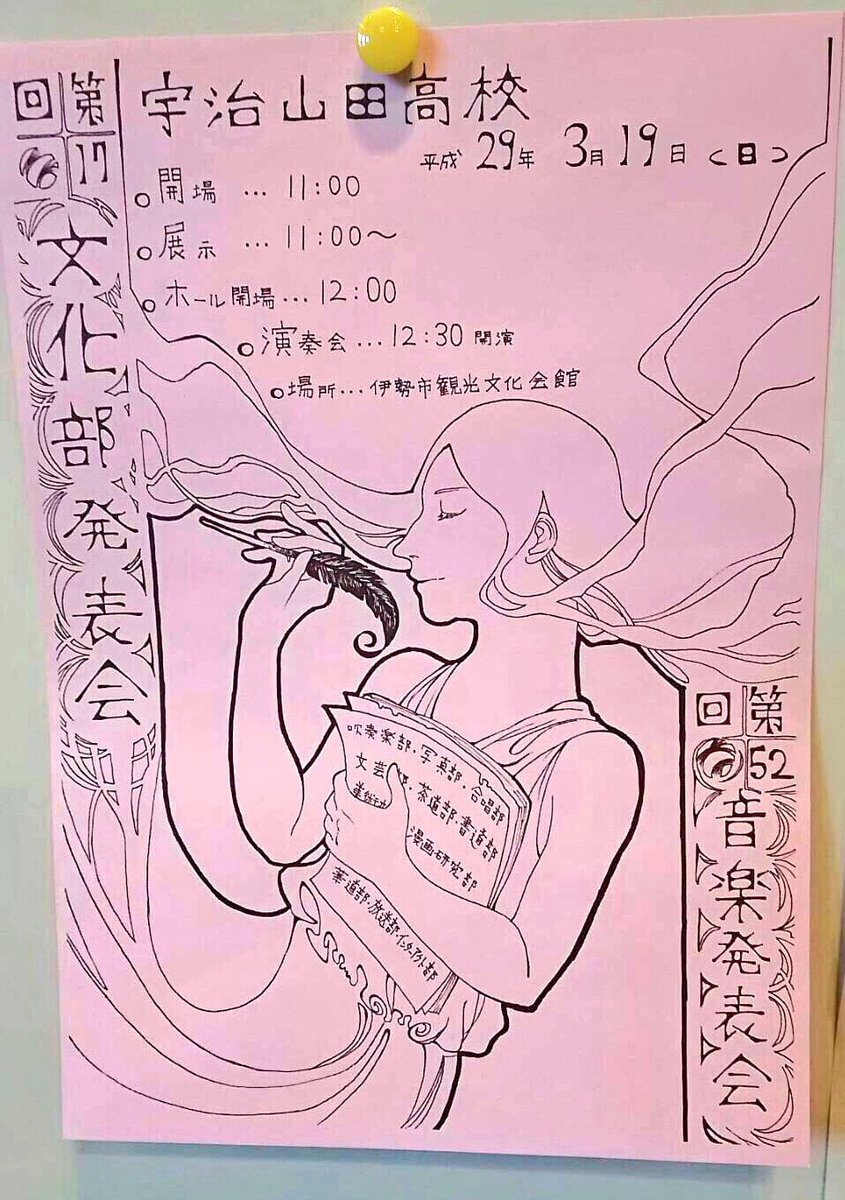 宇治山田高校
平成29年 3月19日(日)
第17回
文化部発表会
開場 … 11:00
展示 … 11:00〜
ホール開場…12:00
演奏会…12:30 開演
場所…伊勢市観光文化会館
吹奏楽部・写真部・合唱部
文芸部・茶道部・書道部
漫画研究部
華道部・放送部・インターアクト部
第52回
音楽発表会